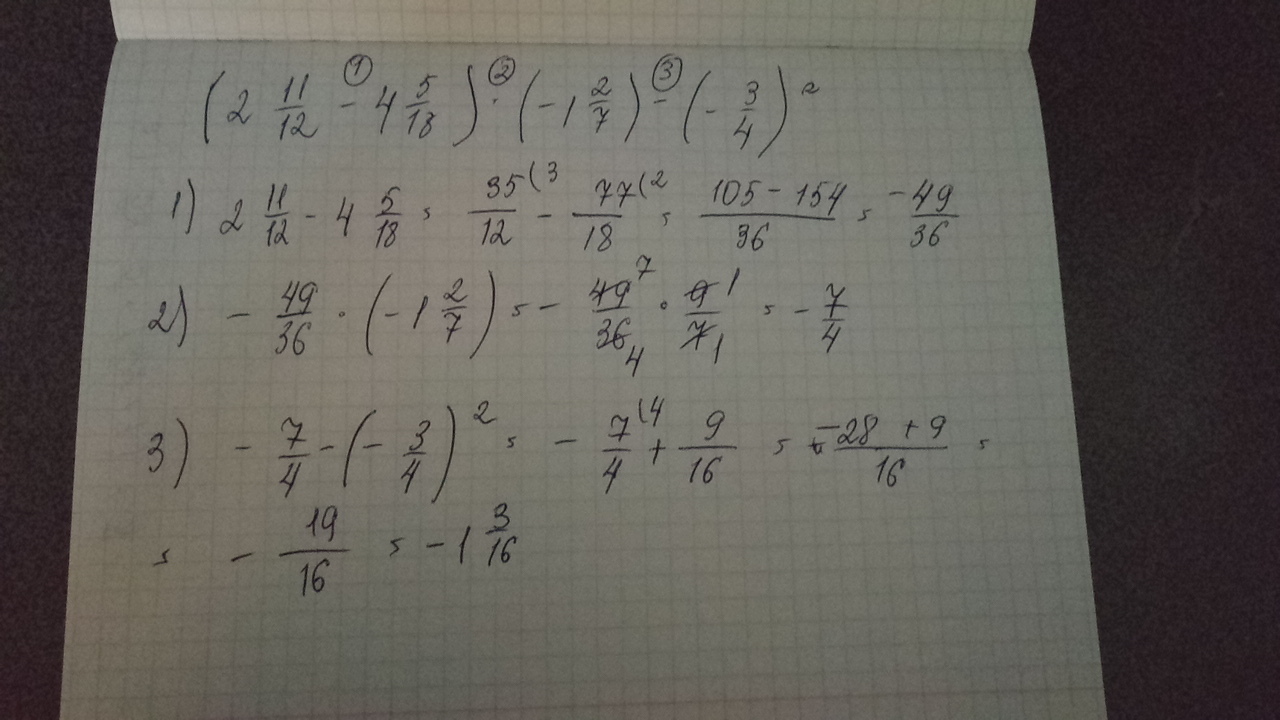 (2 11/12 - 4 5/18) · (-1 2/7) - (-3/4)² ① ② ③
1) 2 11/12 - 4 5/18 = 35(3/12 - 77(2/18 = 105 - 154/36 = -49/36
2) - 49/36 · (-1 2/7) = - 49 7/36 4 · 9 1/7 1 = - 7/4
3) - 7/4 - (-3/4)² = - 7(4/4 + 9/16 = -28 + 9/16 =
= - 19/16 = -1 3/16